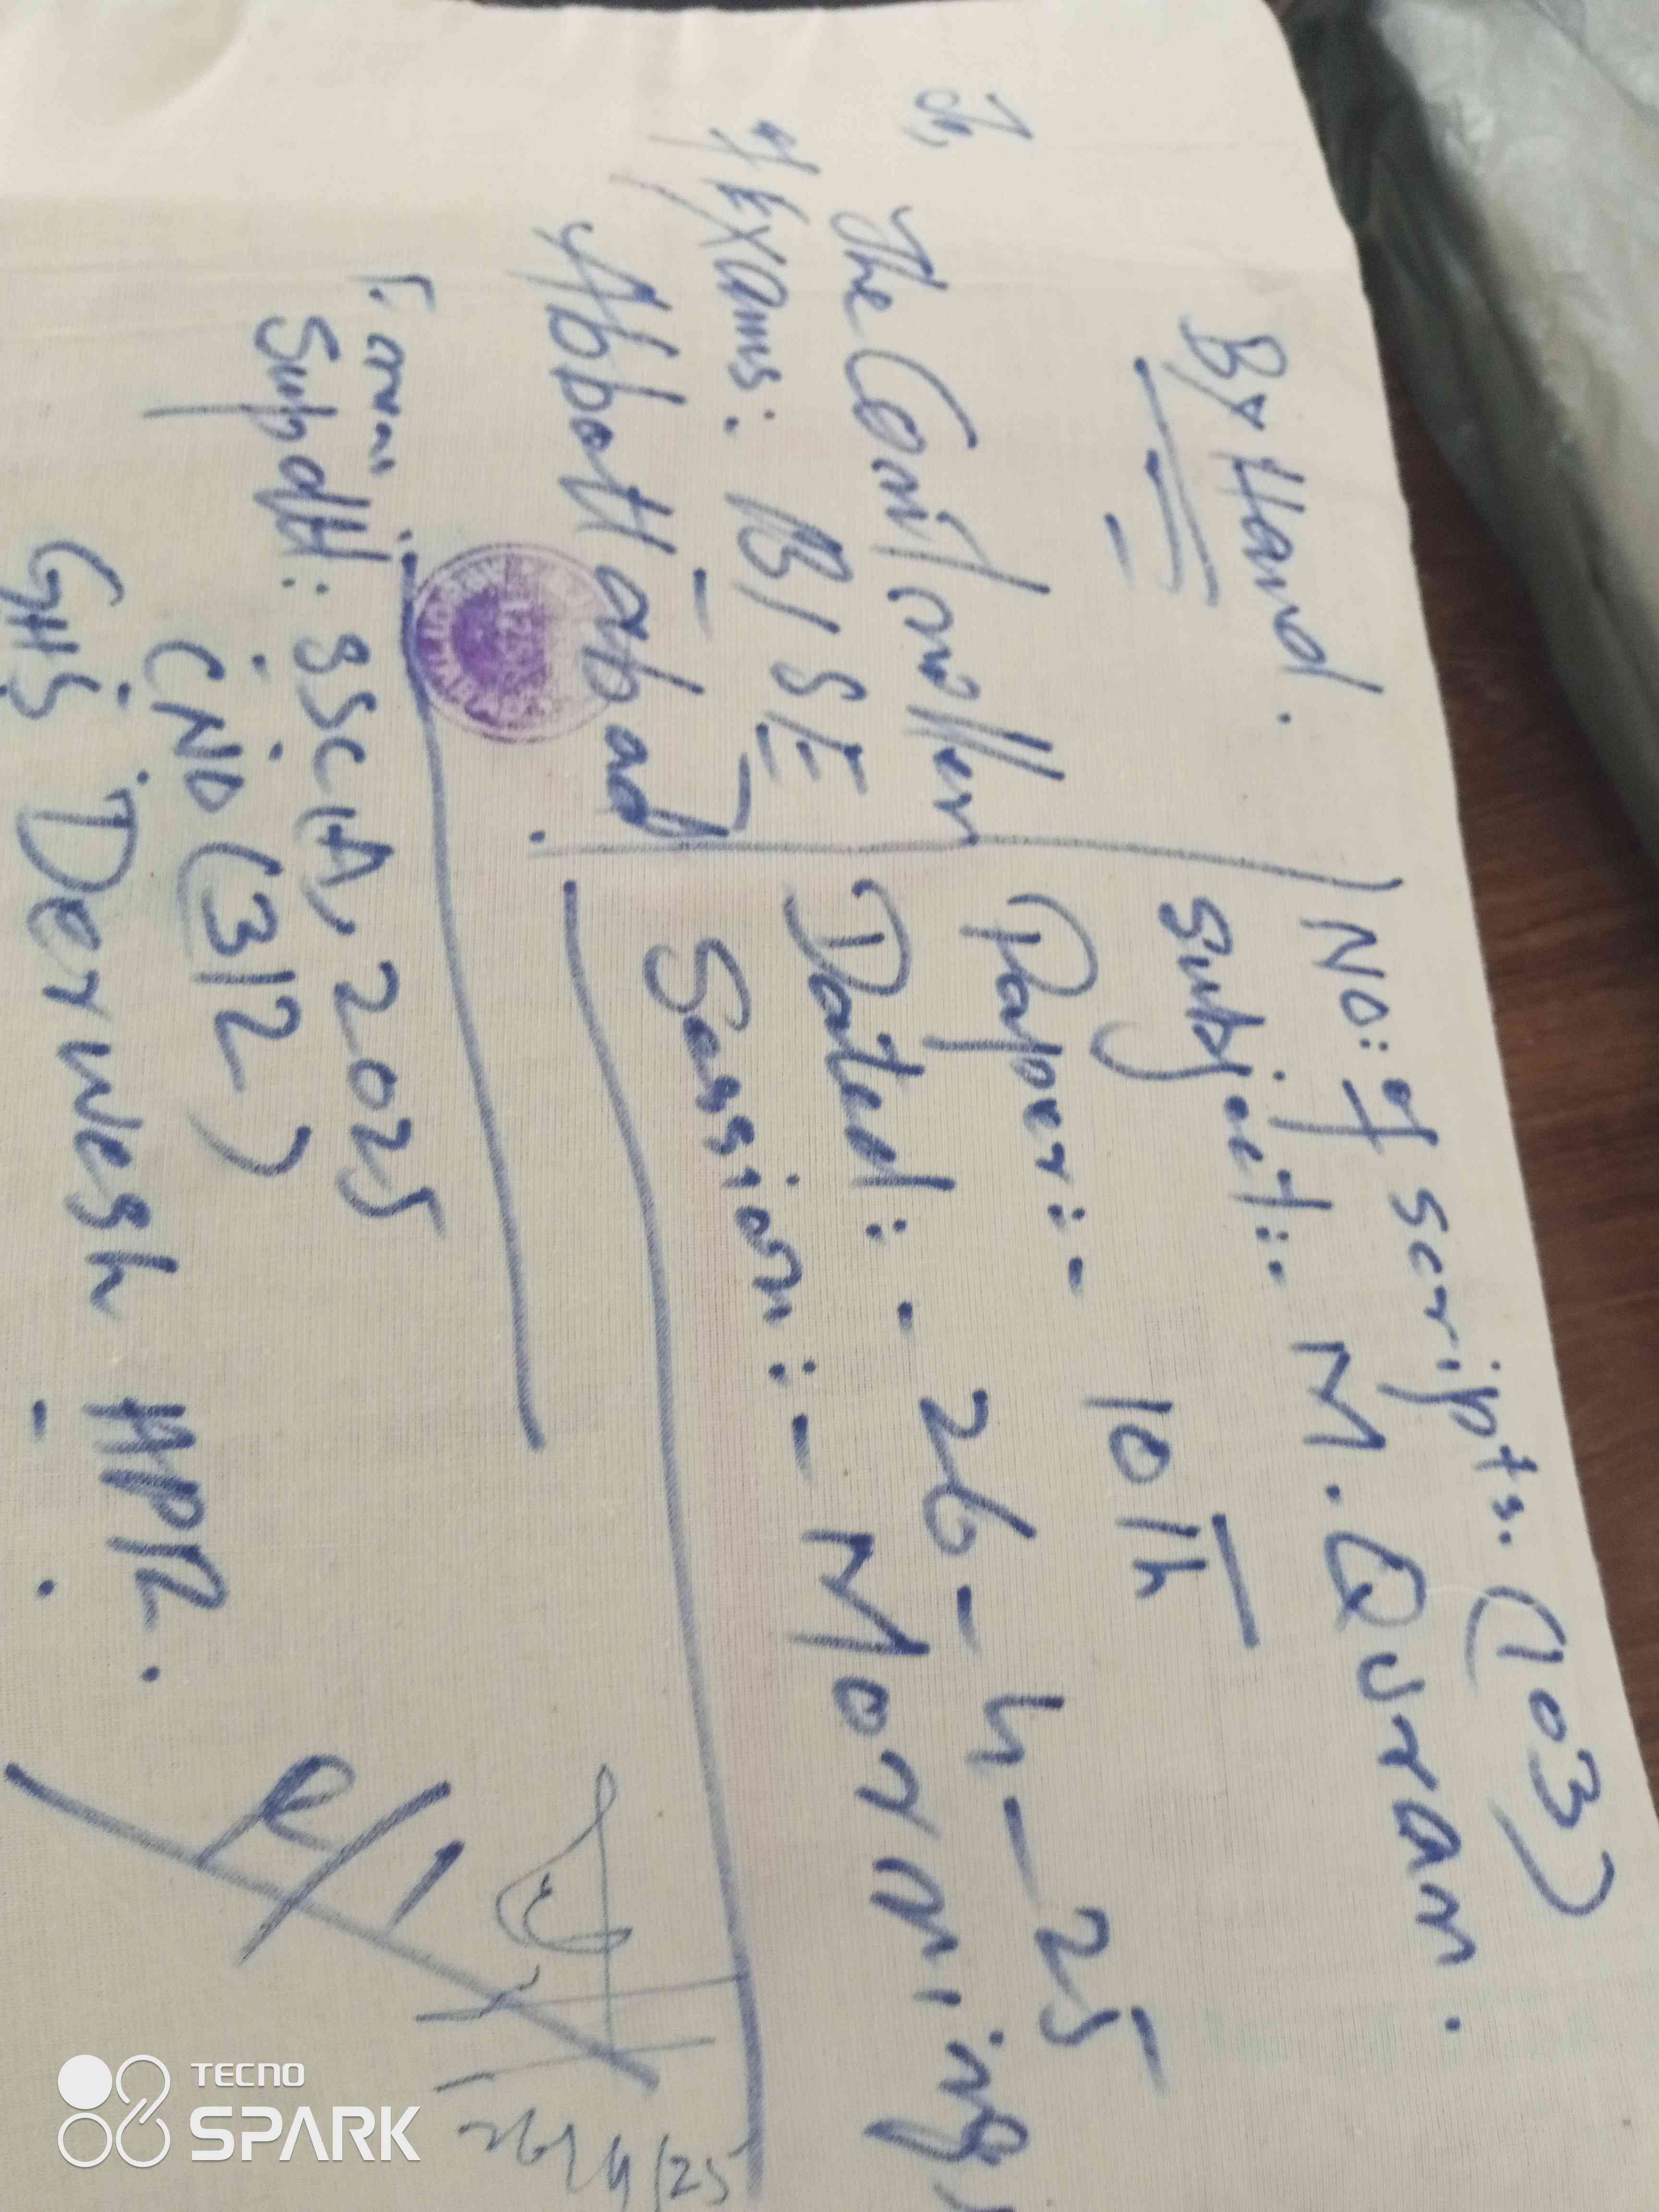 By Hand.
To,
The Controller
of Exams: BISE
Abbottabad
No: of scripts. (103)
Subject:- M. Quran.
Paper:- 10th
Dated:- 26-4-25
Session:- Morning
From:
Supdtt: SSC(A), 2025
C.No (312)
GHS Derwesh HPR.
26/4/25
TECNO
SPARK